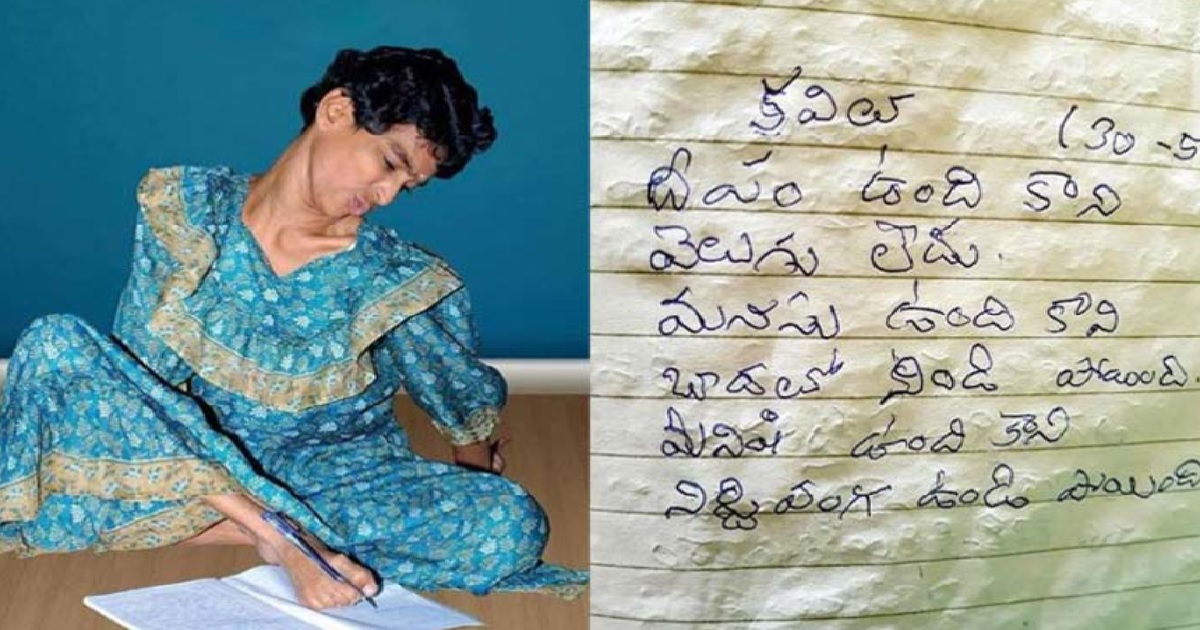 కవిత
(30 -5
దీపం ఉంది కాని
వెలుగు లేదు.
మనసు ఉంది కాని
బాదలో నిండి పోయింది.
మనిషి ఉంది కాని
నిర్జివంగా ఉండి పోయింది